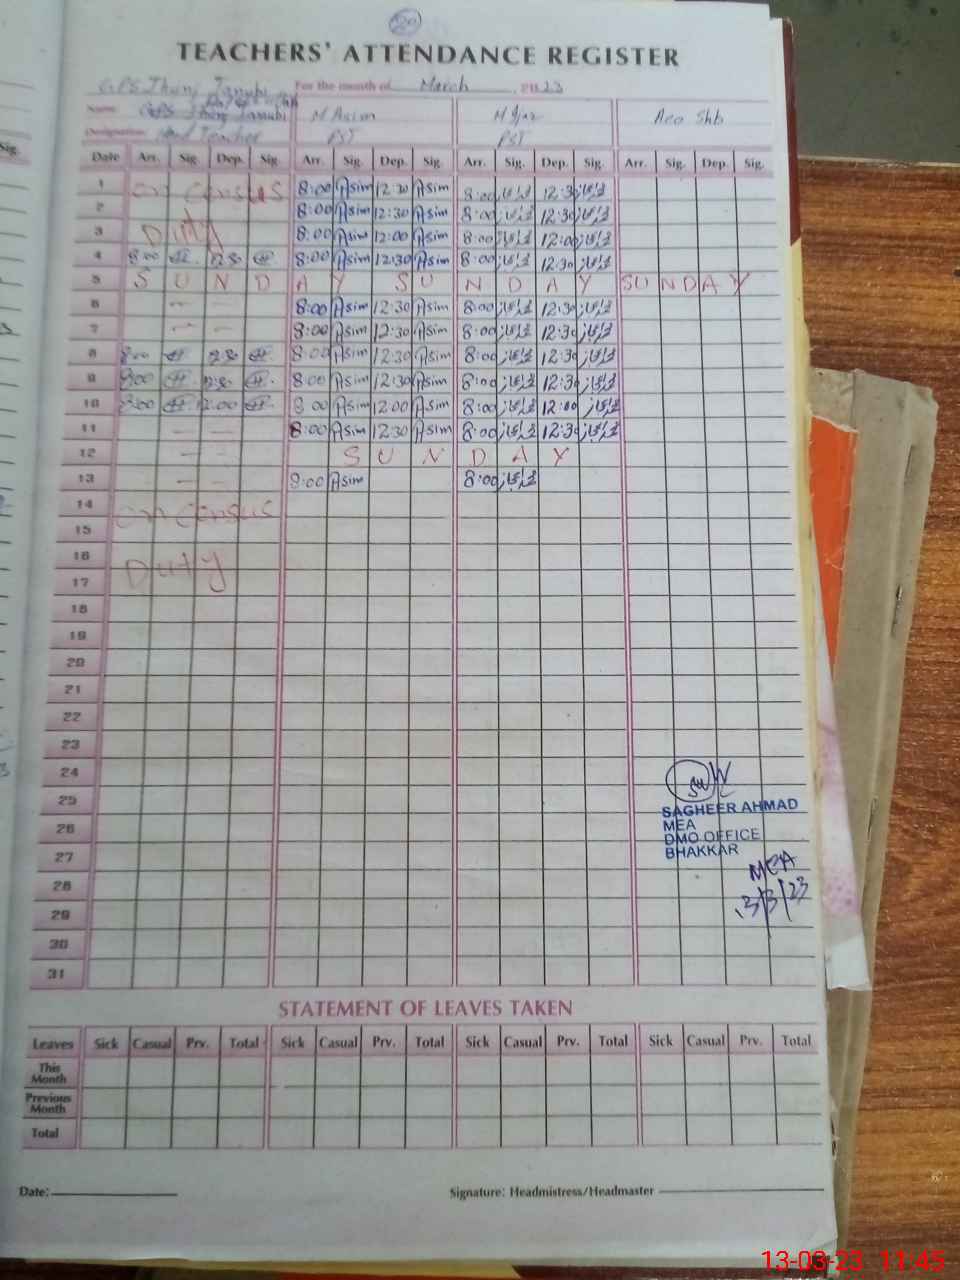 20
TEACHERS' ATTENDANCE REGISTER
GPS Jhunj Janubi For the month of March , 2023
Name M Asim M Ijaz Aeo Shb
Designation Head Teacher PST PST
Date Arr. Sig. Dep. Sig. Arr. Sig. Dep. Sig. Arr. Sig. Dep. Sig. Arr. Sig. Dep. Sig.
1 on census 8:00 Asim 12:30 Asim 8:00 اعجاز 12:30 اعجاز
2 8:00 Asim 12:30 Asim 8:00 اعجاز 12:30 اعجاز
3 Duty 8:00 Asim 12:00 Asim 8:00 اعجاز 12:00 اعجاز
4 8:00 12:30 8:00 Asim 12:30 Asim 8:00 اعجاز 12:30 اعجاز
5 S U N D A Y S U N D A Y SUNDAY
6 — — 8:00 Asim 12:30 Asim 8:00 اعجاز 12:30 اعجاز
7 — — 8:00 Asim 12:30 Asim 8:00 اعجاز 12:30 اعجاز
8 8:00 12:30 8:00 Asim 12:30 Asim 8:00 اعجاز 12:30 اعجاز
9 8:00 12:30 8:00 Asim 12:30 Asim 8:00 اعجاز 12:30 اعجاز
10 8:00 12:00 8:00 Asim 12:00 Asim 8:00 اعجاز 12:00 اعجاز
11 — — 8:00 Asim 12:30 Asim 8:00 اعجاز 12:30 اعجاز
12 — — S U N D A Y
13 — — 8:00 Asim 8:00 اعجاز
14 on census
15
16 Duty
17
18
19
20
21
22
23
24
25 SAGHEER AHMAD
26 MEA
DMO OFFICE
27 BHAKKAR
28 MEA
29 13/3/23
30
31
STATEMENT OF LEAVES TAKEN
Leaves Sick Casual Prv. Total Sick Casual Prv. Total Sick Casual Prv. Total Sick Casual Prv. Total
This Month
Previous Month
Total
Date: Signature: Headmistress/Headmaster
13-03-23 11:45